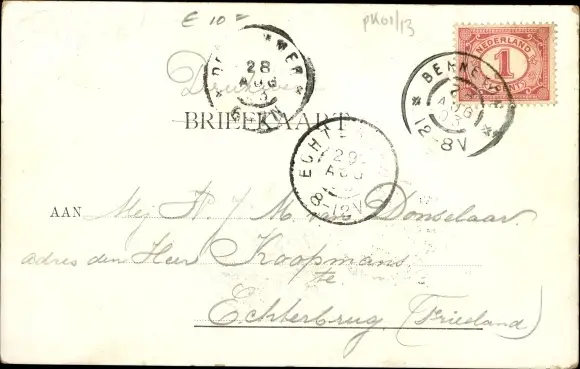 E 10 =
pk01/13
NEDERLAND
1
CENT
28
AUG
BENNEK
2
AUG
12-8V
Drukwerk
BRIEFKAART
ECHTE
29
AUG
8-12V
AAN Mej A. J. M. van Donselaar.
adres den Heer Koopmans
te
Echterbrug. (Friesland)